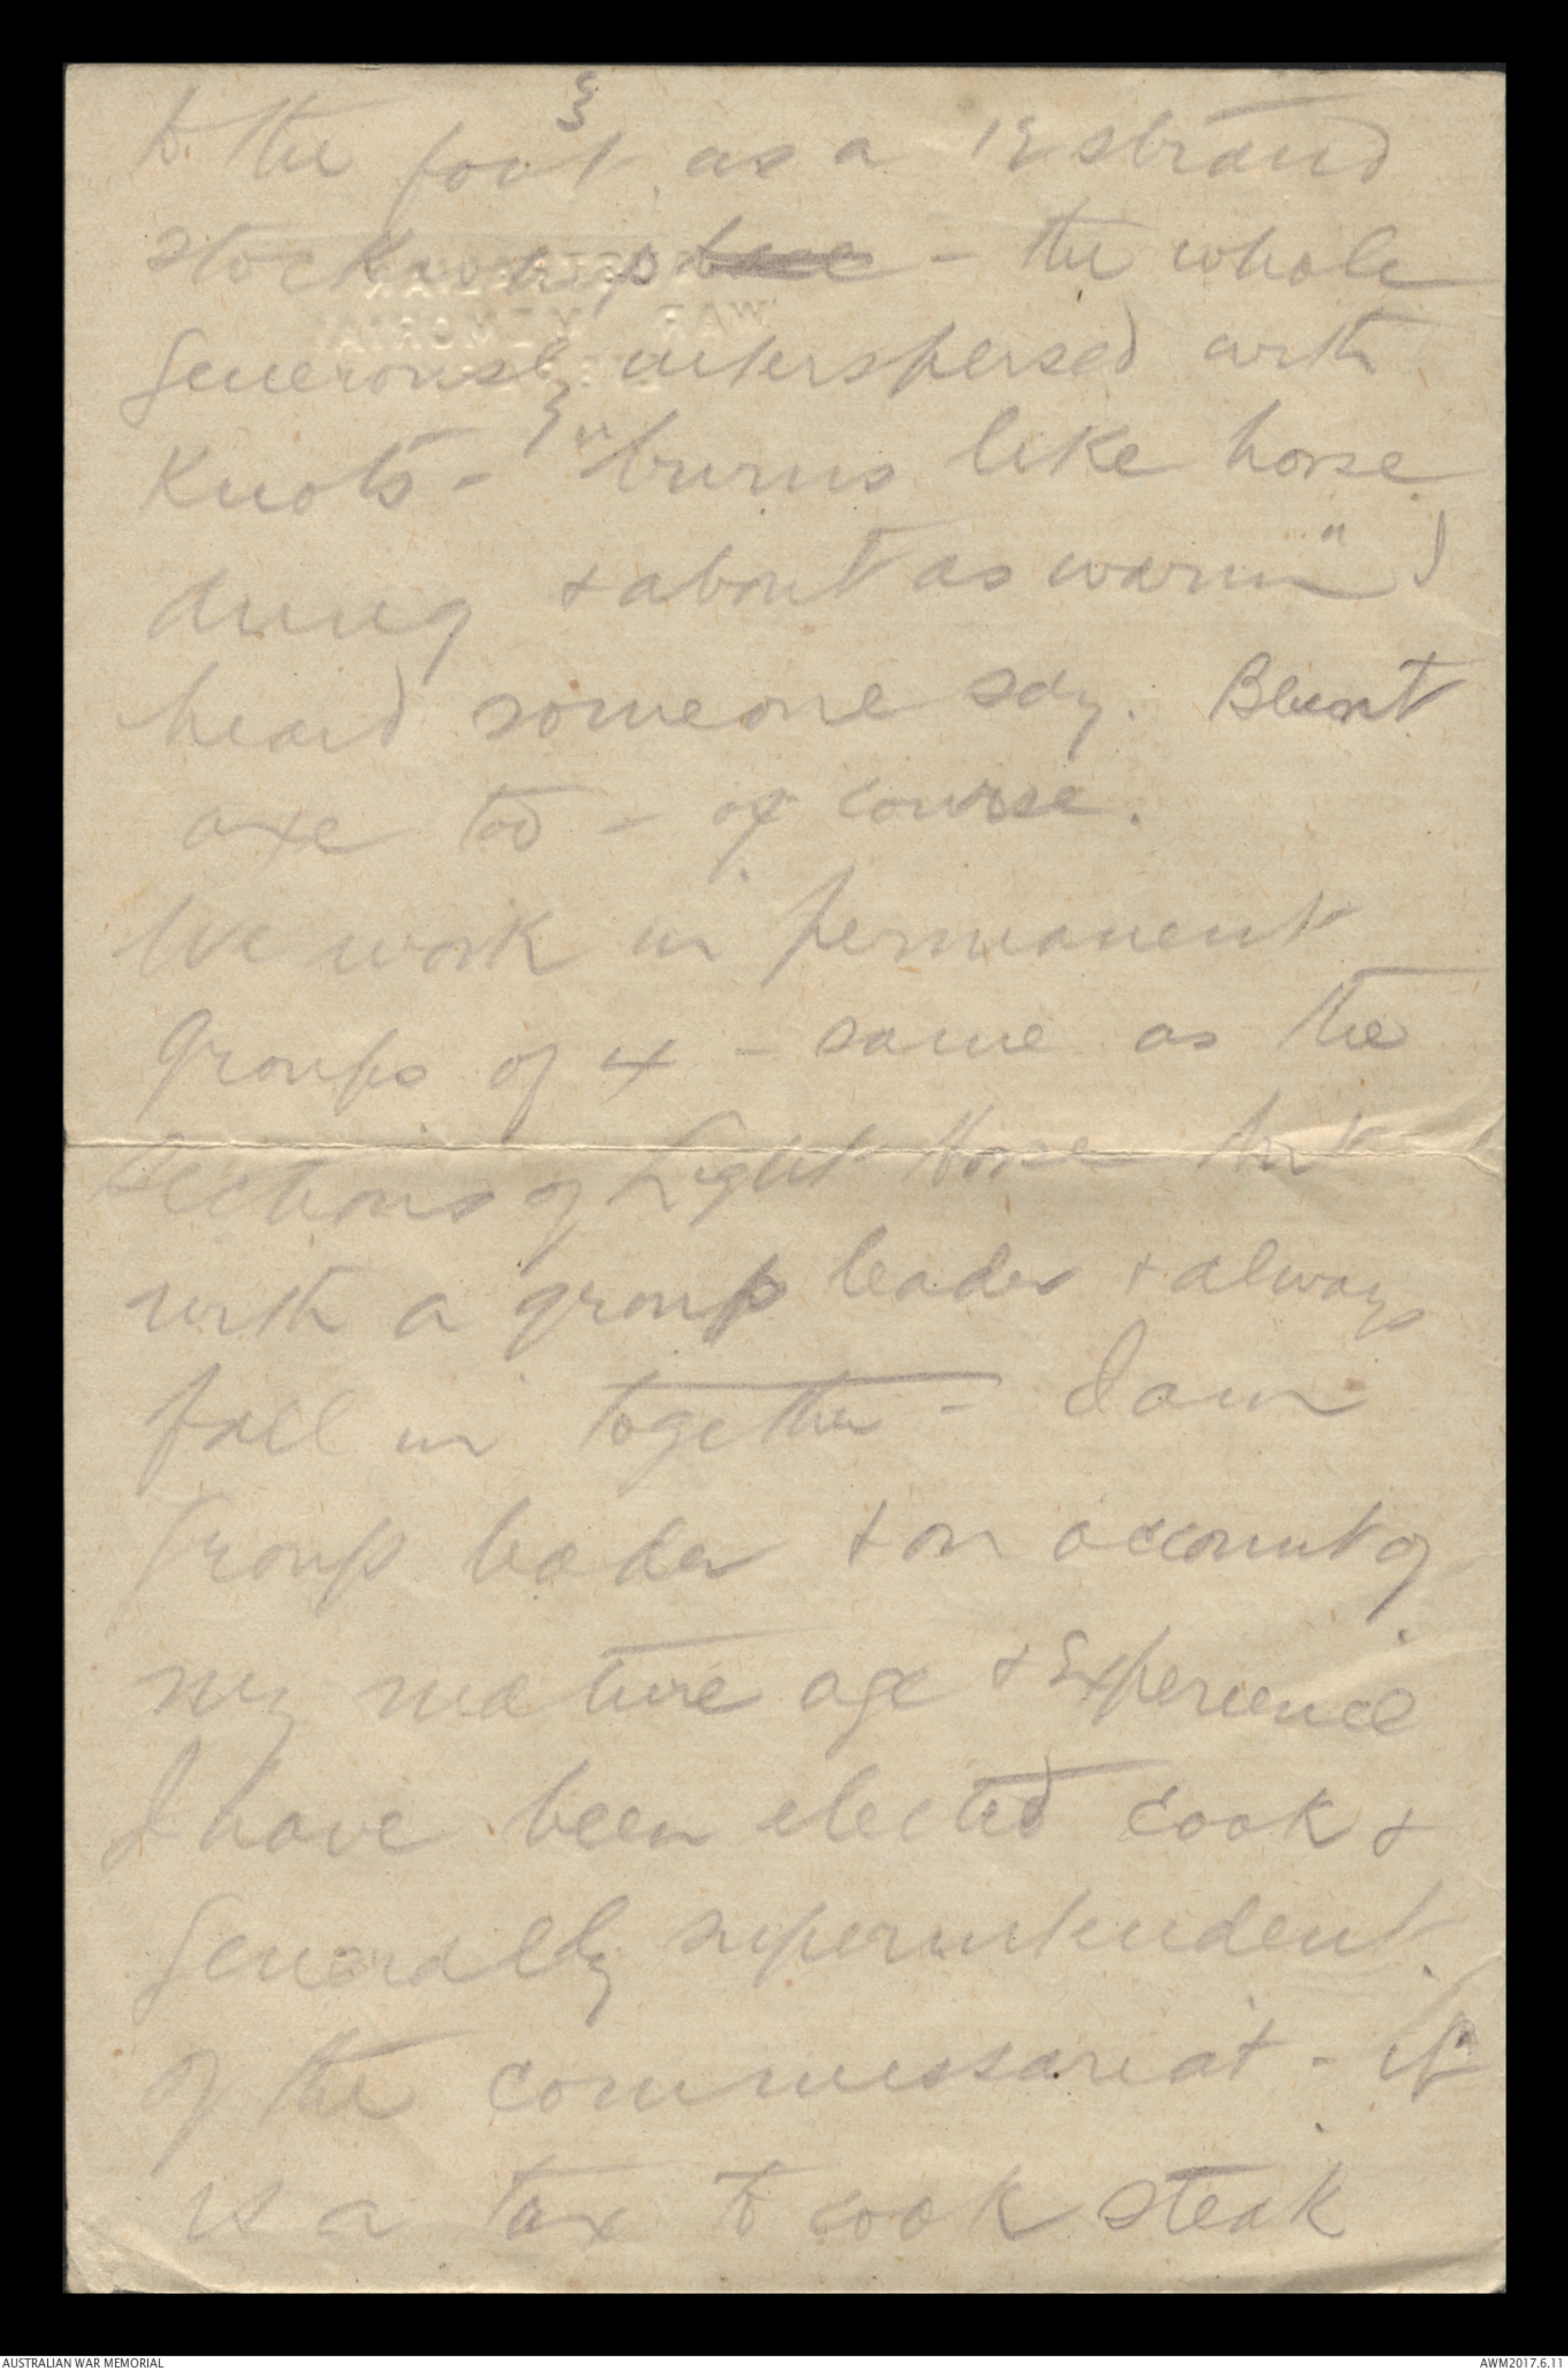 to the foot as a 12 strand
stockwhip - the whole
generously interspersed with
Knots - "burns like horse
dung + about as warm" I
heard someone say. Blunt
axe too - of course.
We work in permanent
groups of 4 - same as the
sections of Light Horse but
with a group leader + always
fall in together - I am
Group leader + on account of
my mature age + Experience
I have been elected cook +
Generally superintendent
of the commissariat - It
is a tax to cook steak
AUSTRALIAN WAR MEMORIAL
AWM2017.6.11